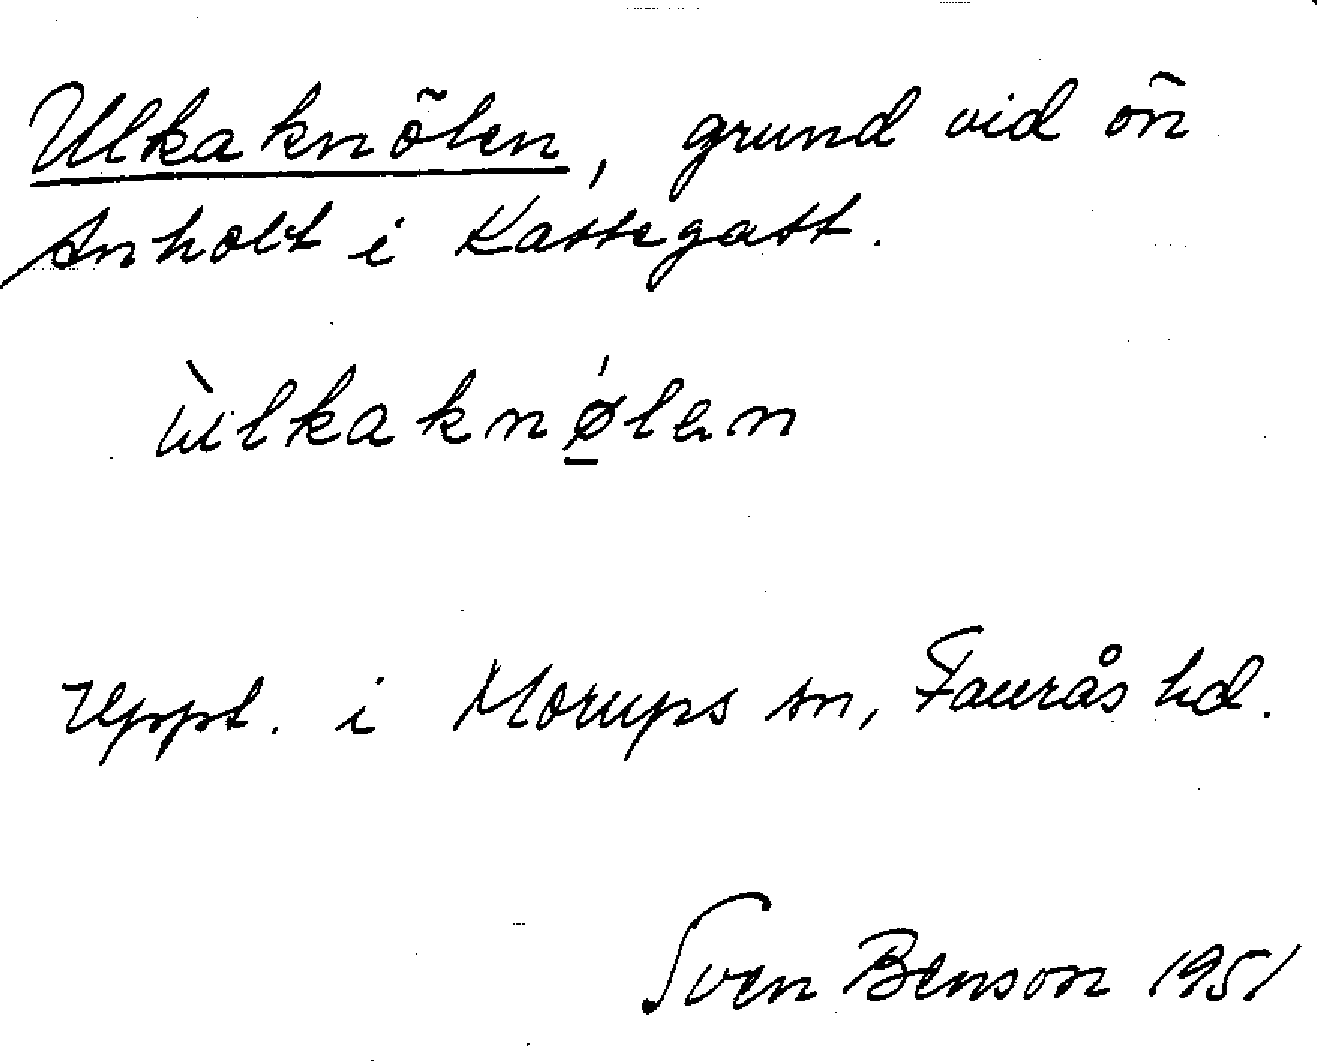 Ulkaknölen, grund vid ön
Anholt i Kattegatt.
ùlkaknǿ̲lən
Uppt. i Morups sn, Faurås hd.
Sven Benson 1951